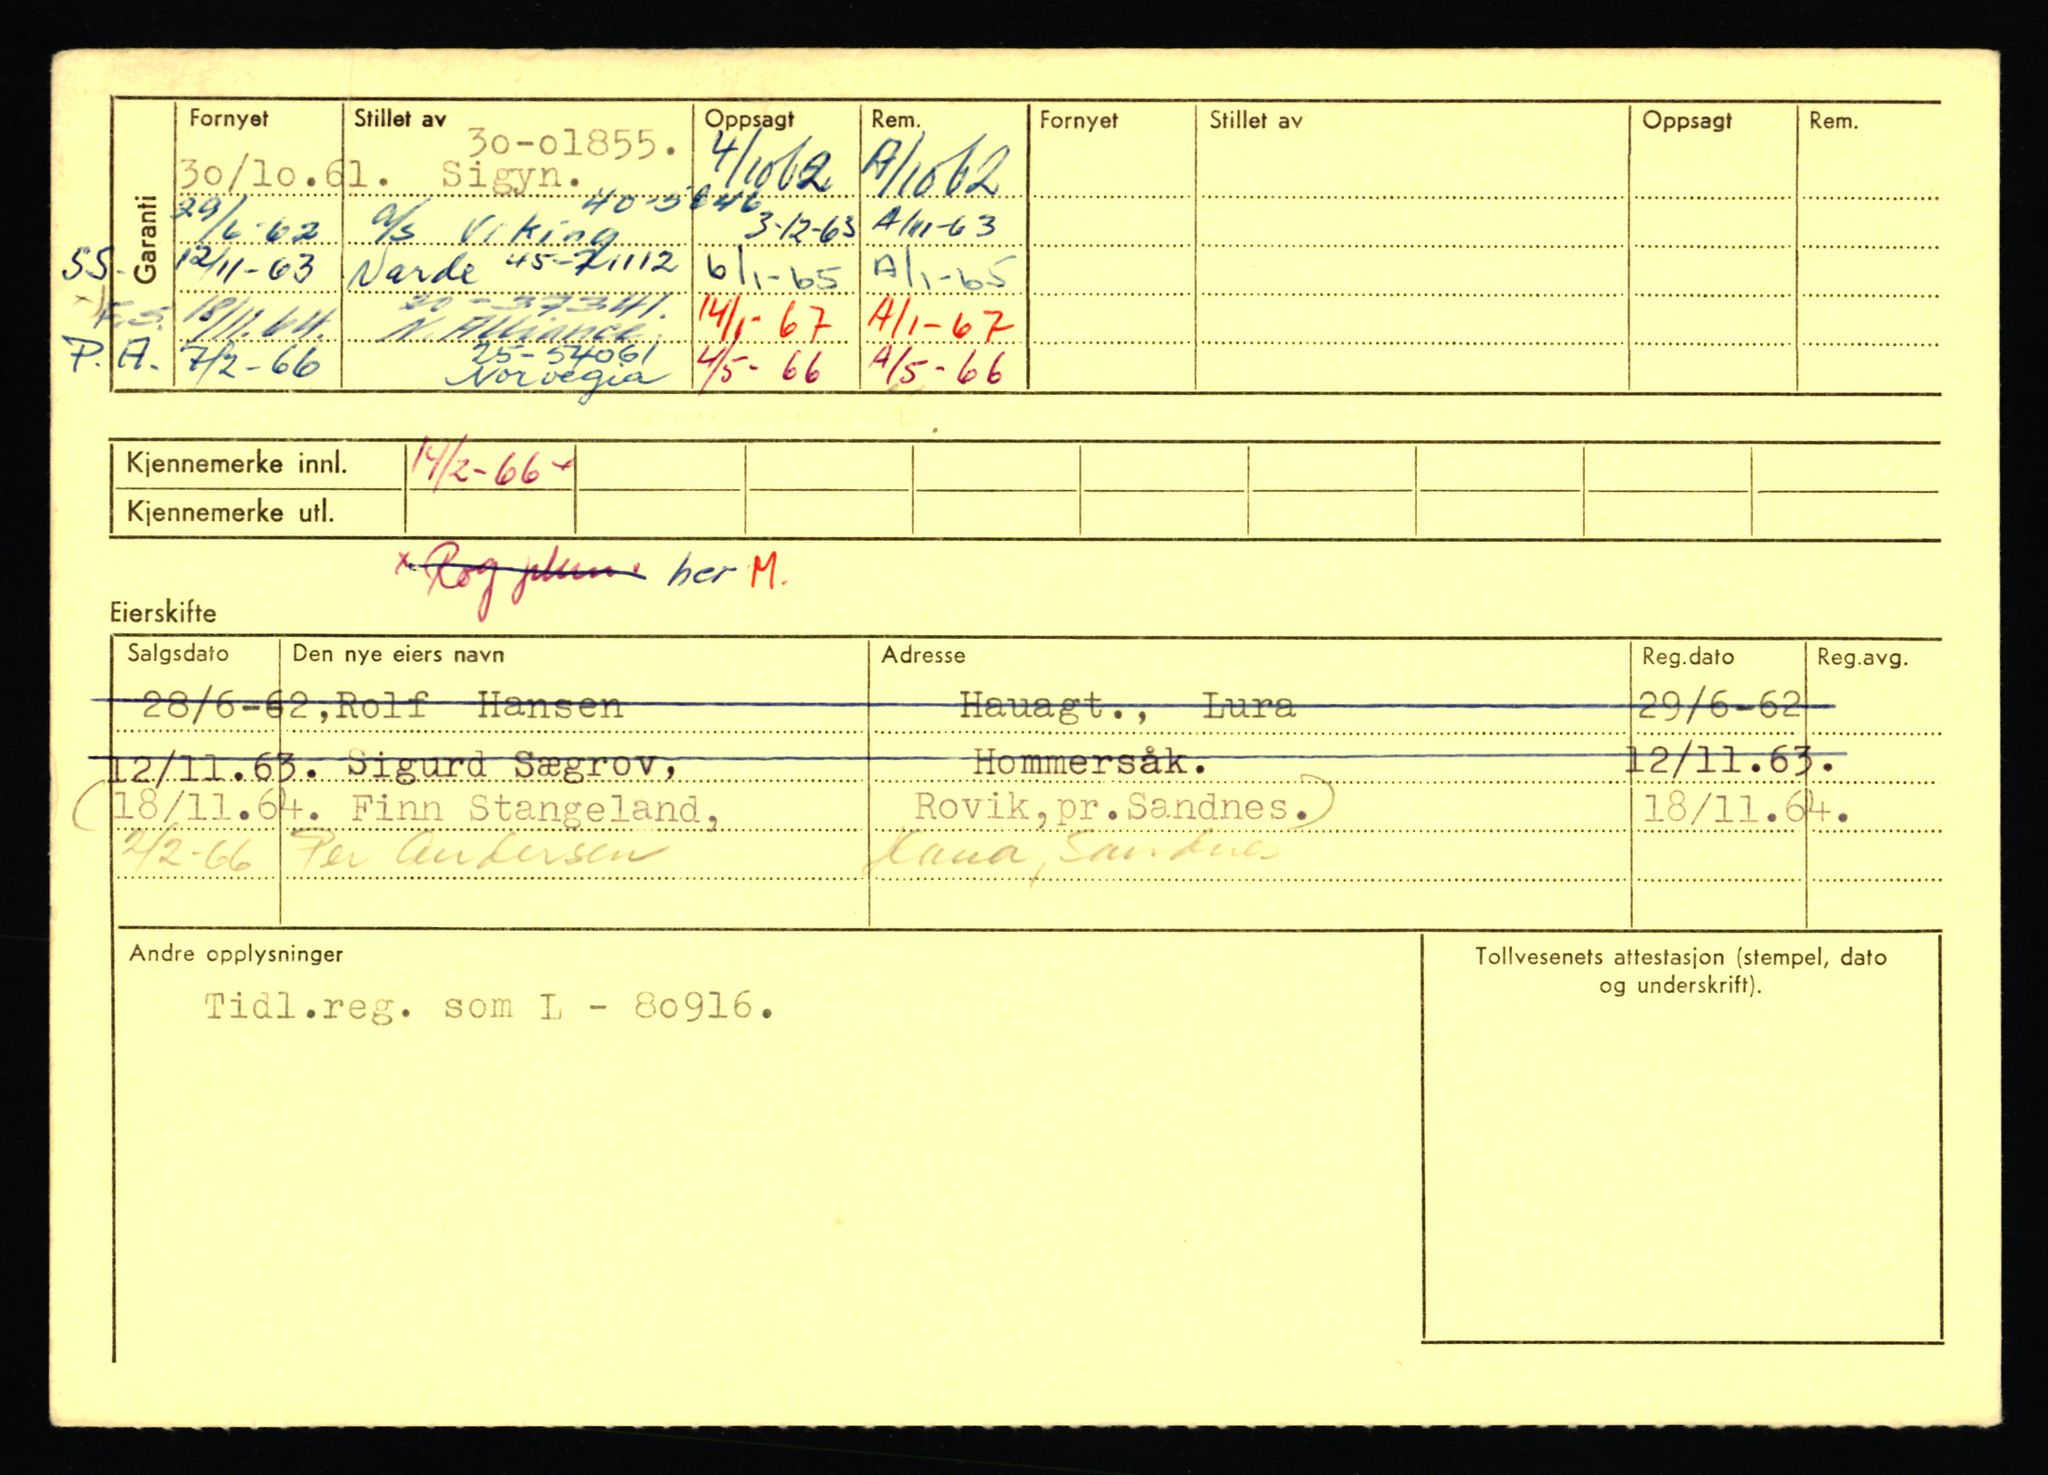 Garanti
Fornyet Stillet av Oppsagt Rem. Fornyet Stillet av Oppsagt Rem.
30-01855.
30/10.61. Sigyn. 4/10 62 A/10 62
29/6-62 a/s Viking 3-12-63 A/11-63
SS- 12/11-63 Narde 45-71112 6/1-65 A/1-65
20-37341.
F.S. 18/11.64. N. Alliance. 14/1-67 A/1-67
25-54061
P.A. 7/2-66 Norvegia 4/5-66 A/5-66
Kjennemerke innl. 14/2-66
Kjennemerke utl.
x Rog her M.
Eierskifte
Salgsdato Den nye eiers navn Adresse Reg.dato Reg.avg.
28/6-62, Rolf Hansen Hauagt., Lura 29/6-62
12/11.63. Sigurd Sægrov, Hommersåk. 12/11.63.
(18/11.64. Finn Stangeland, Rovik, pr. Sandnes.) 18/11.64.
2/2-66 Per Andersen Hana, Sandnes
Andre opplysninger
Tollvesenets attestasjon (stempel, dato
og underskrift).
Tidl.reg. som L - 80916.